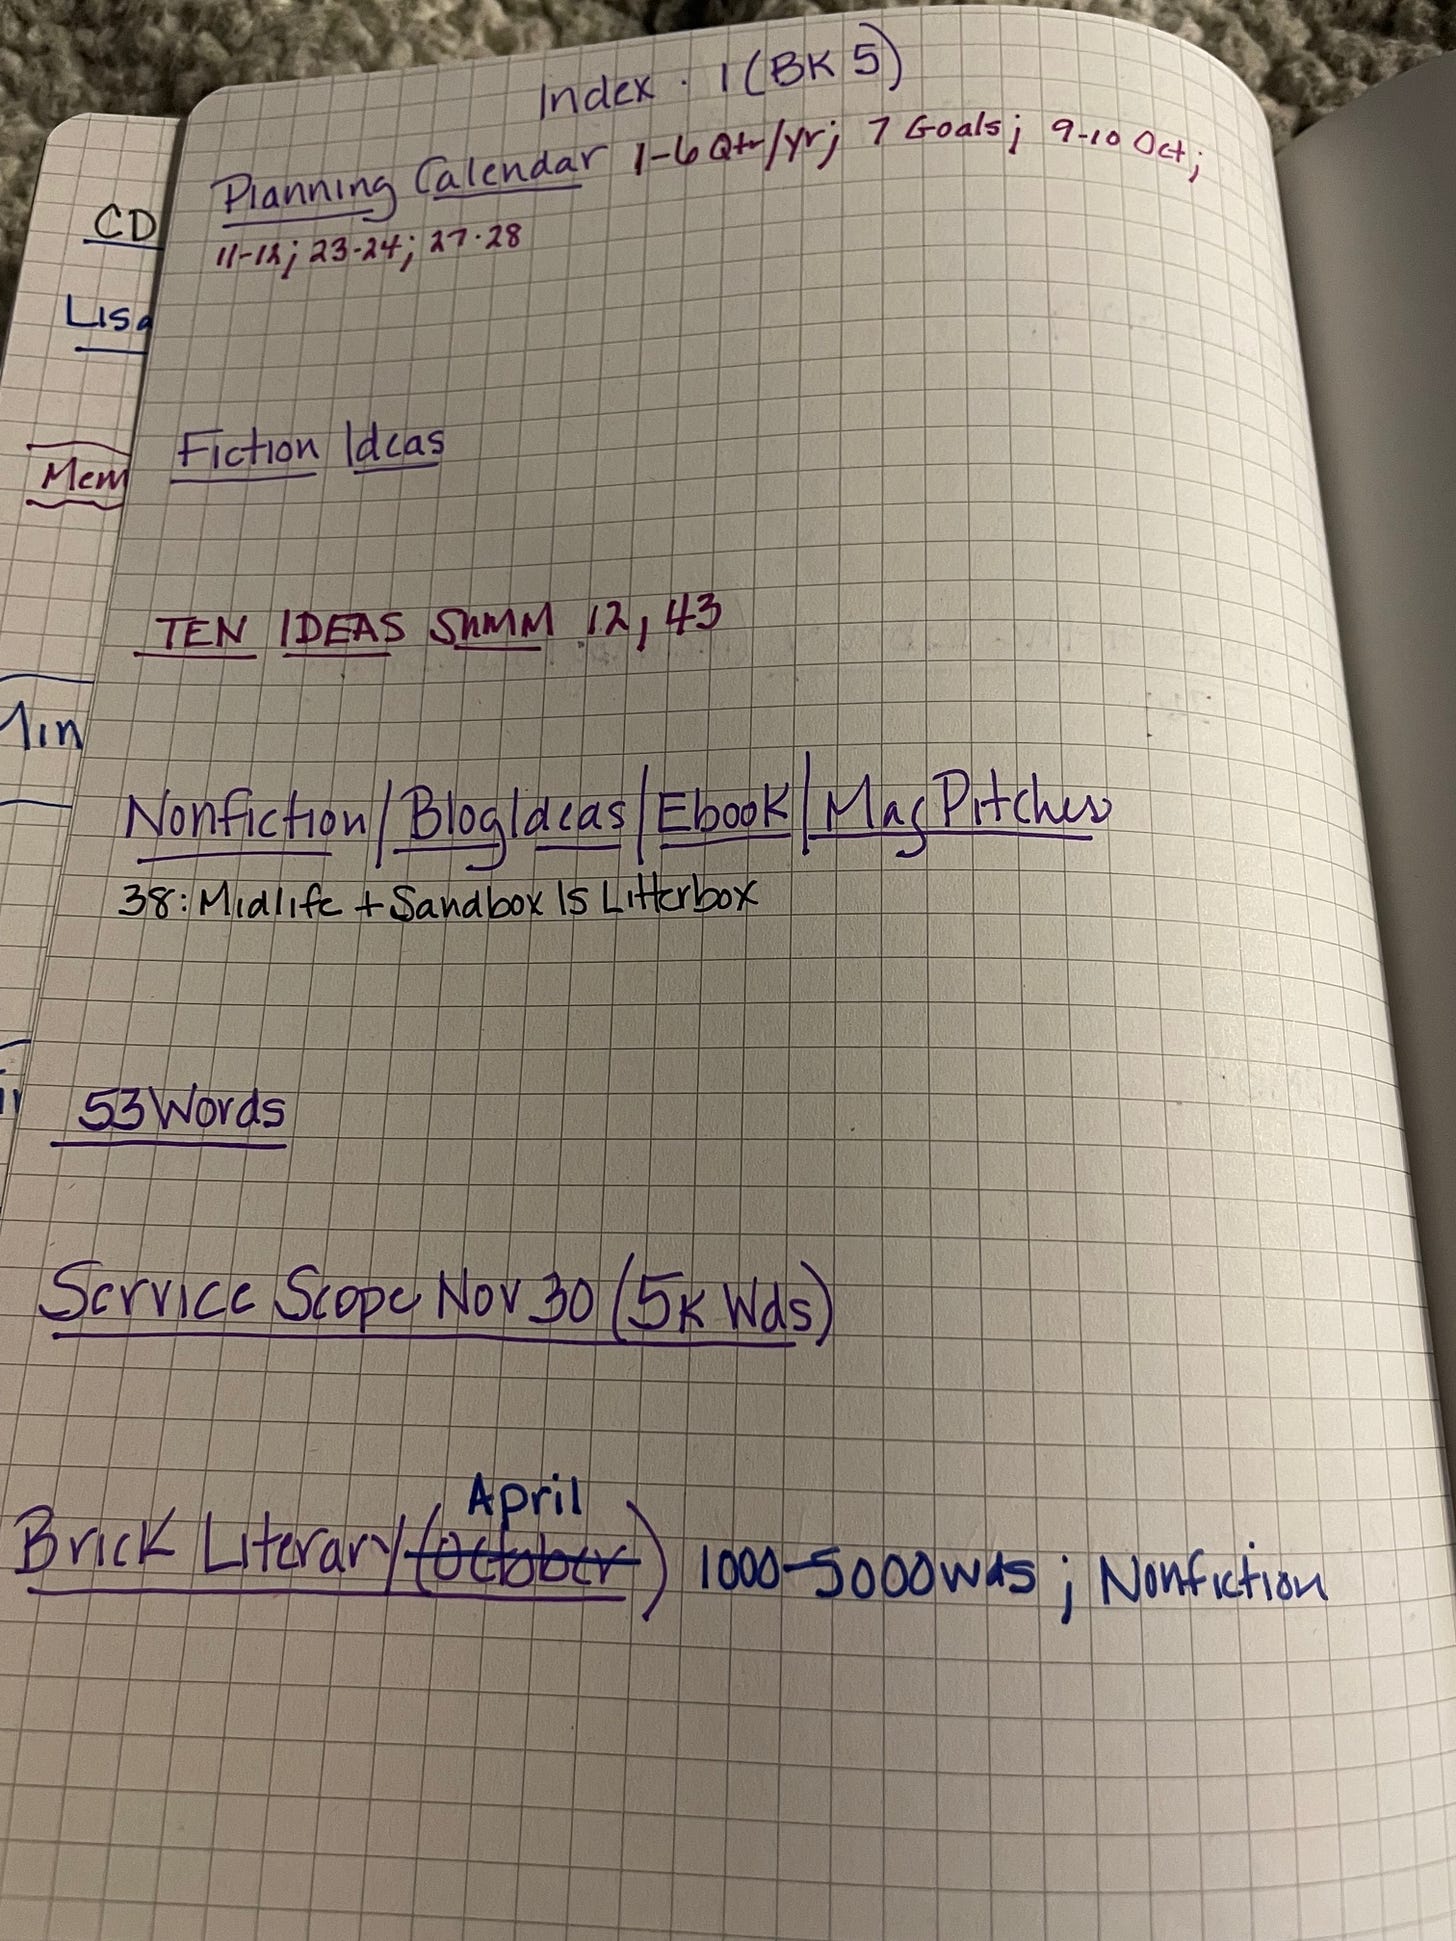 Index · 1 (BK 5)
Planning Calendar 1-6 Qtr/yr; 7 Goals; 9-10 Oct;
11-12; 23-24; 27·28
CD
Lisa
Fiction Ideas
Mem
TEN IDEAS SHMM 12, 43
Min
Nonfiction/BlogIdeas/Ebook/Mag Pitches
38: Midlife + Sandbox Is Litterbox
53 Words
Service Scope Nov 30 (5K Wds)
April
Brick Literary (October) 1000-5000 wds; Nonfiction